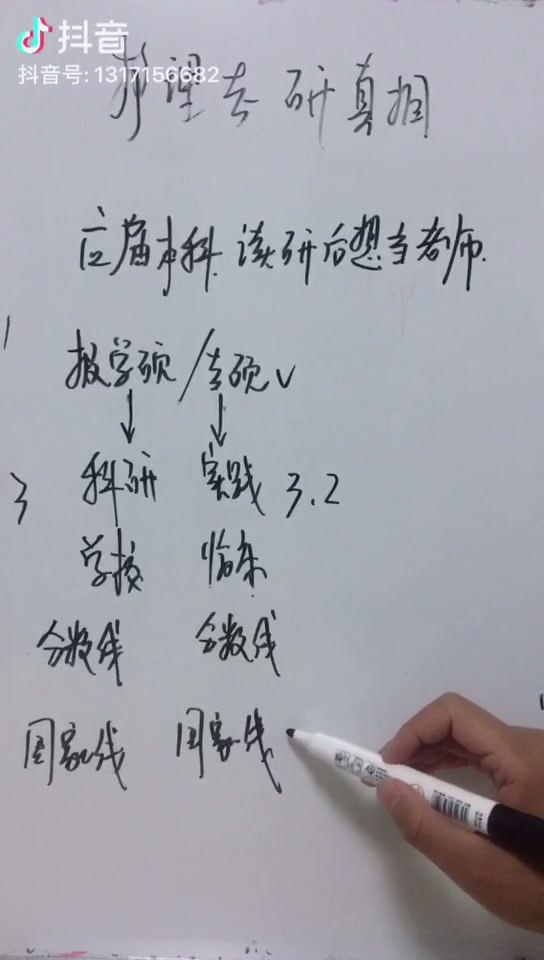 抖音
抖音号: 1317156682
护理考研真相
应届本科 读研后想当老师.
报学硕/专硕√
↓ ↓
3 科研 实践 3.2
学校 临床
分数线 分数线
国家线 国家线